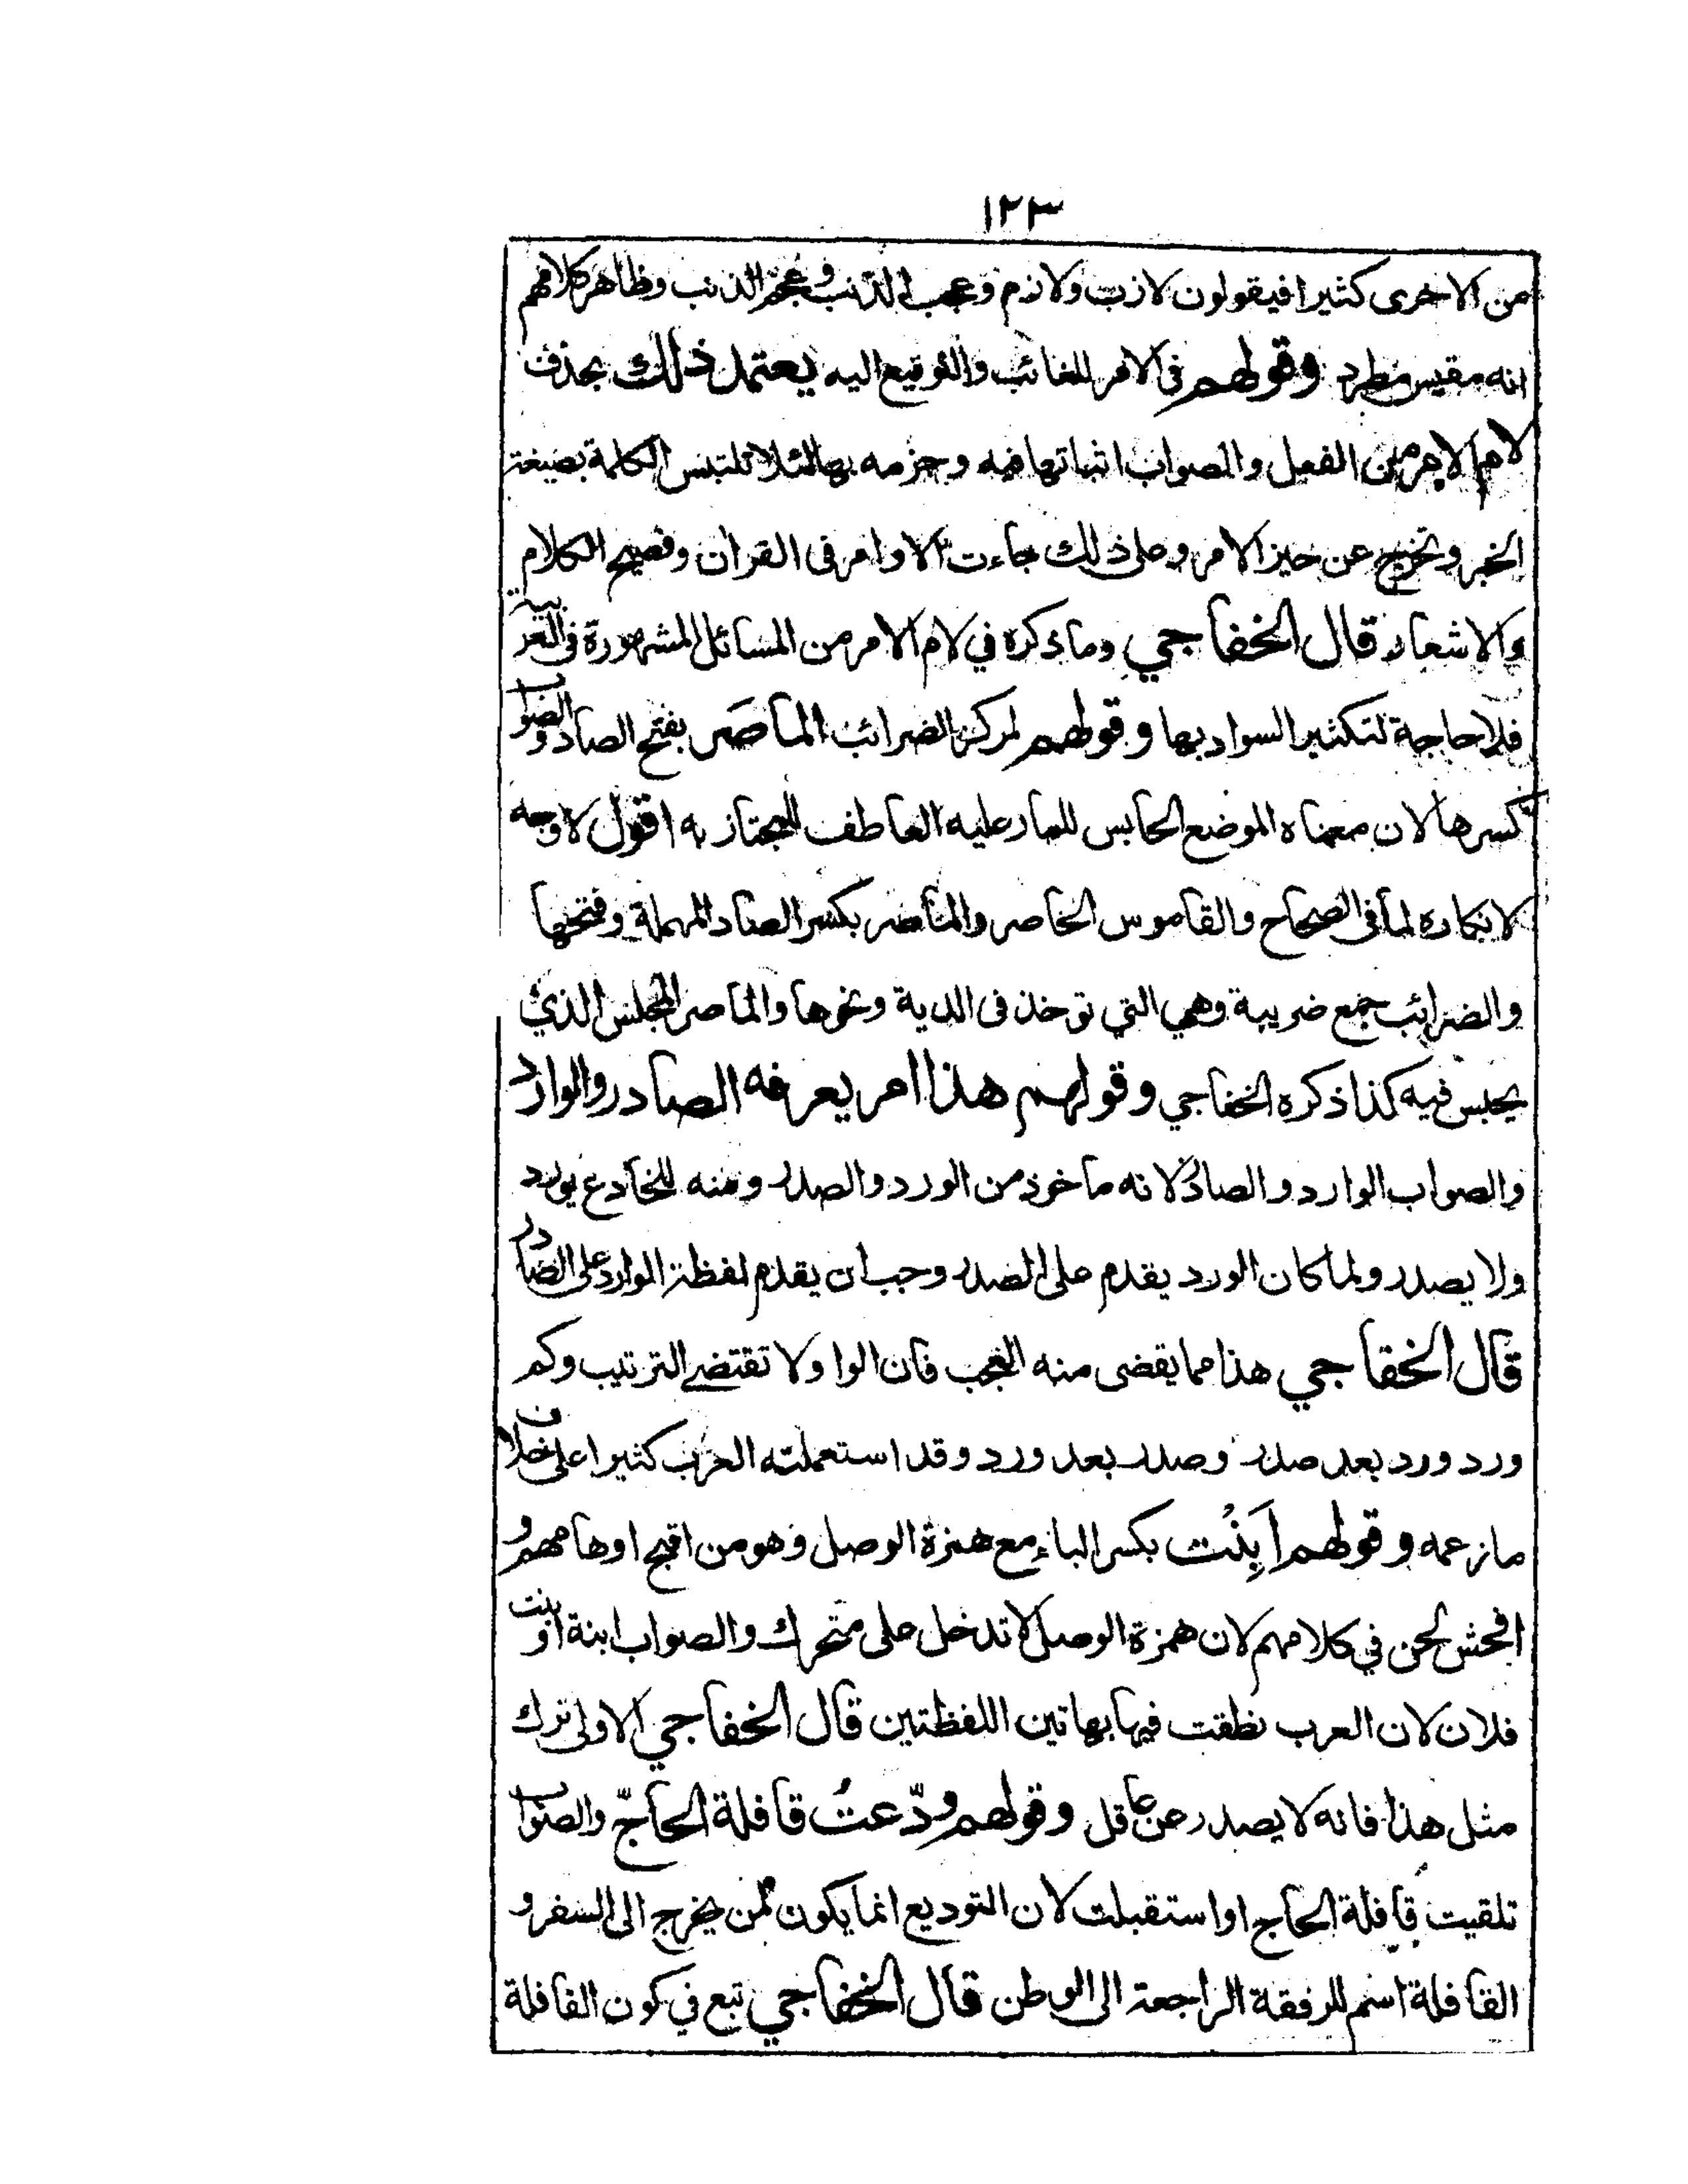 ١٢٣
من الاخرى كثيرا فيقولون لازب ولازم وعجب الذنب وعجم الذنب وظاهر كلامهم
انه مقيس مطرد وقولهم فى الامر للغائب والتوقيع اليه يعتمد ذلك بحذف
لام الامر من الفعل والصواب اثباتها فيه وجزمه بها لئلا تلتبس الكلمة بصيغة
الخبر وتخرج عن حيز الامر وعلى ذلك جاءت الاوامر فى القران وفصيح الكلام
والاشعار قال الخفاجي وما ذكره في لام الامر من المسائل المشهورة فى العربية
فلا حاجة لتكثير السواد بها وقولهم لمركز الضرائب الماصَر بفتح الصاد والصواب
كسرها لان معناه الموضع الحابس للمار عليه العاطف للمجتاز به اقول لا وجه
لانكاره لما فى الصحاح والقاموس الخاصر والماصر بكسر الصاد المهملة وفتحها
والضرائب جمع ضريبة وهي التي توخذ فى الدية ونحوها والماصر المجلس الذي
يحبس فيه كذا ذكره الخفاجي وقولهم هذا امر يعرفه الصادر والوارد
والصواب الوارد والصادر لانه ماخوذ من الورد والصدر ومنه للخادع يورد
ولا يصدر ولما كان الورد يقدم على الصدر وجب ان يقدم لفظة الوارد على الصادر
قال الخفاجي هذا مما يقضى منه العجب فان الواو لا تقتضے الترتيب وكم
ورد ورد بعد صدر وصدر بعد ورد وقد استعملته العرب كثيرا على خلاف
ما زعمه وقولهم اَبِنْت بكسر الباء مع همزة الوصل وهو من اقبح اوهامهم و
افحش لحن في كلامهم لان همزة الوصل لا تدخل على متحرك والصواب ابنة او بنت
فلان لان العرب نطقت فيها بهاتين اللفظتين قال الخفاجي الاولى ترك
مثل هذا فانه لا يصدر عن عاقل وقولهم ودّعتُ قافلة الحاجّ والصواب
تلقيت قافلة الحاج او استقبلت لان التوديع انما يكون لمن يخرج الى السفر و
القافلة اسم للرفقة الراجعة الى الوطن قال الخفاجي تبع في كون القافلة